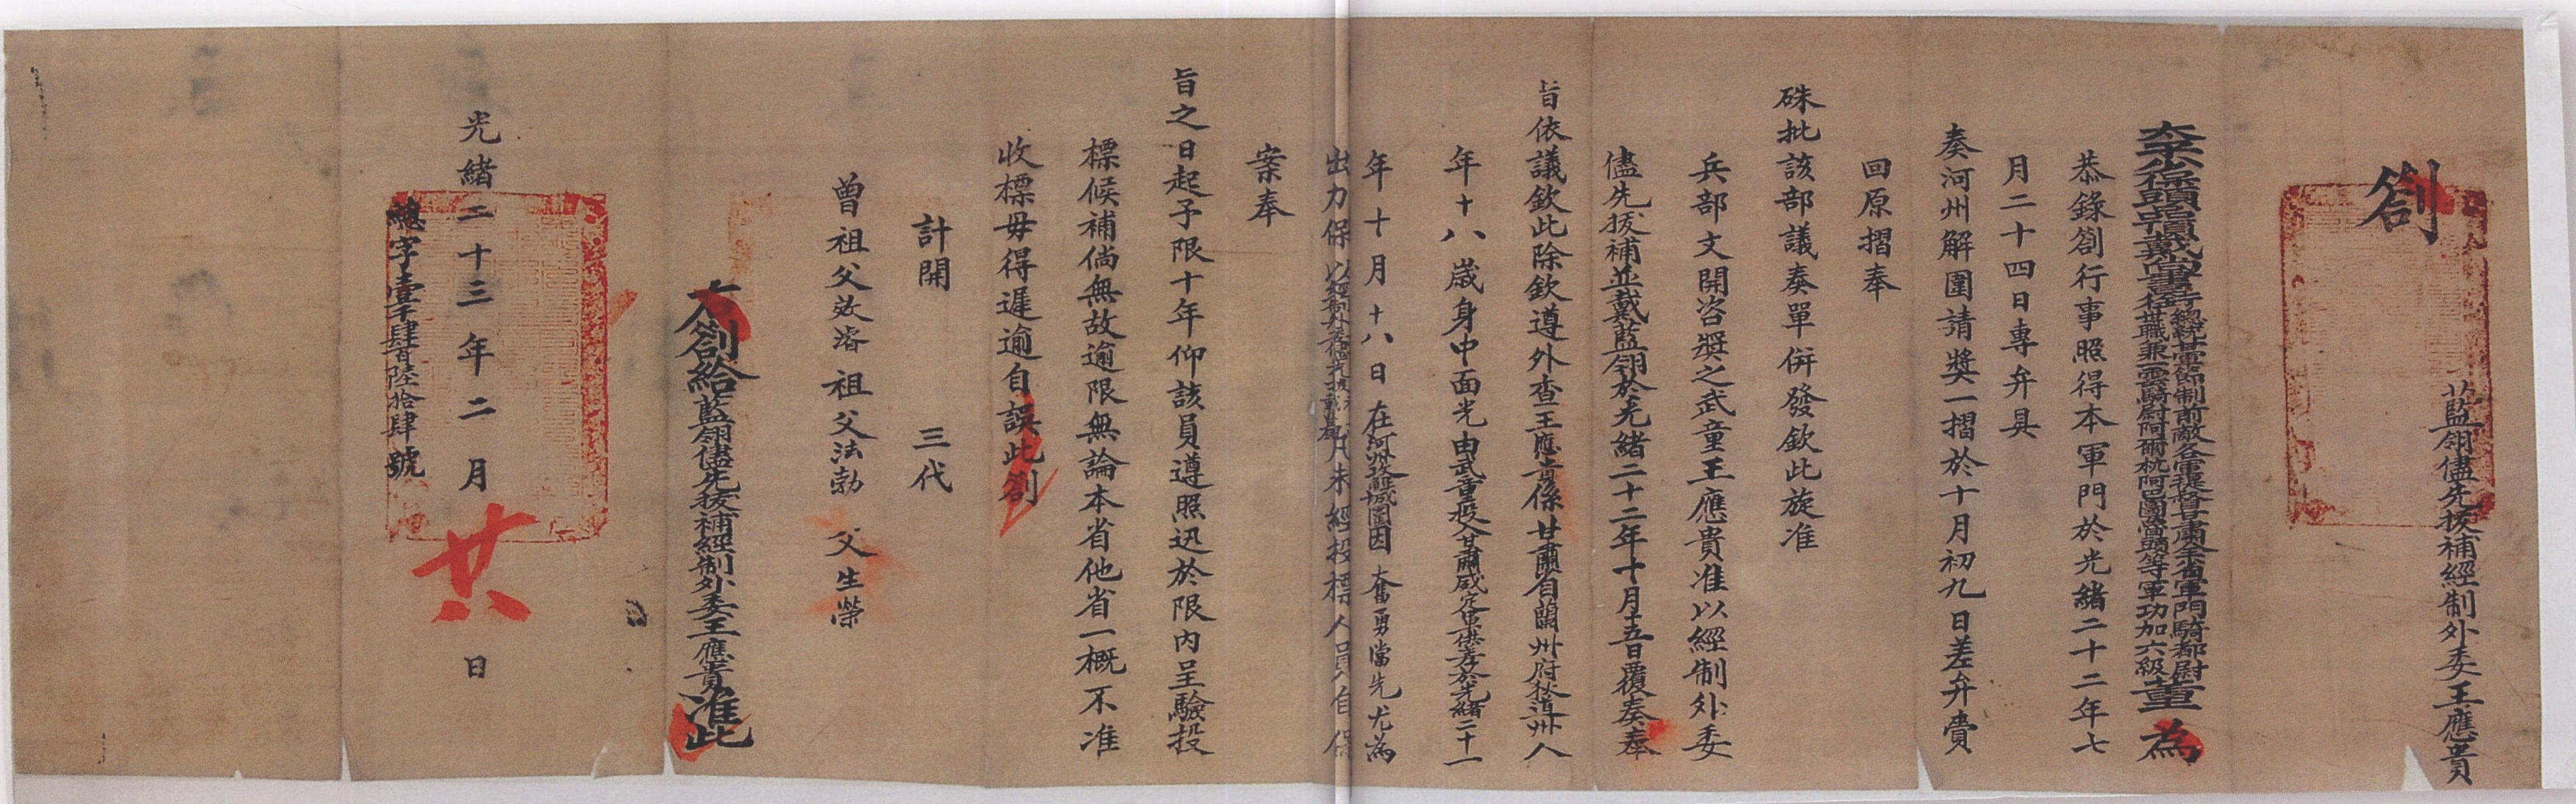 劄
藍翎儘先拔補經制外委王應貴
太子少保頭品頂戴尚書銜總統甘軍節制前敵各軍提督甘肅全省軍門騎都尉世職兼一雲騎尉阿爾杭阿巴圖魯頭等軍功加六級董 為
恭錄劄行事照得本軍門於光緒二十二年七
月二十四日專弁具
奏河州解圍請獎一摺於十月初九日差弁賫
回原摺奉
硃批該部議奏單併發欽此旋准
兵部文開咨獎之武童王應貴准以經制外委
儘先拔補並戴藍翎於光緒二十二年十月十五日覆奏奉
旨依議欽此除欽遵外查王應貴係甘肅省蘭州府狄道州人
年十八歲身中面光由武童投入甘肅威定軍供差於光緒二十一
年十月十八日在河州攻解城圍因奮勇當先尤為
出力保以經制外委儘先拔補未經投標人員自
案奉
旨之日起予限十年仰該員遵照迅於限內呈驗投
標候補倘無故逾限無論本省他省一概不准
收標毋得遲逾自誤此劄
計開 三代
曾祖父效濬 祖父法勃 父生榮
右劄給藍翎儘先拔補經制外委王應貴准此
光緒二十三年二月廿六日
總字壹千肆百陸拾肆號